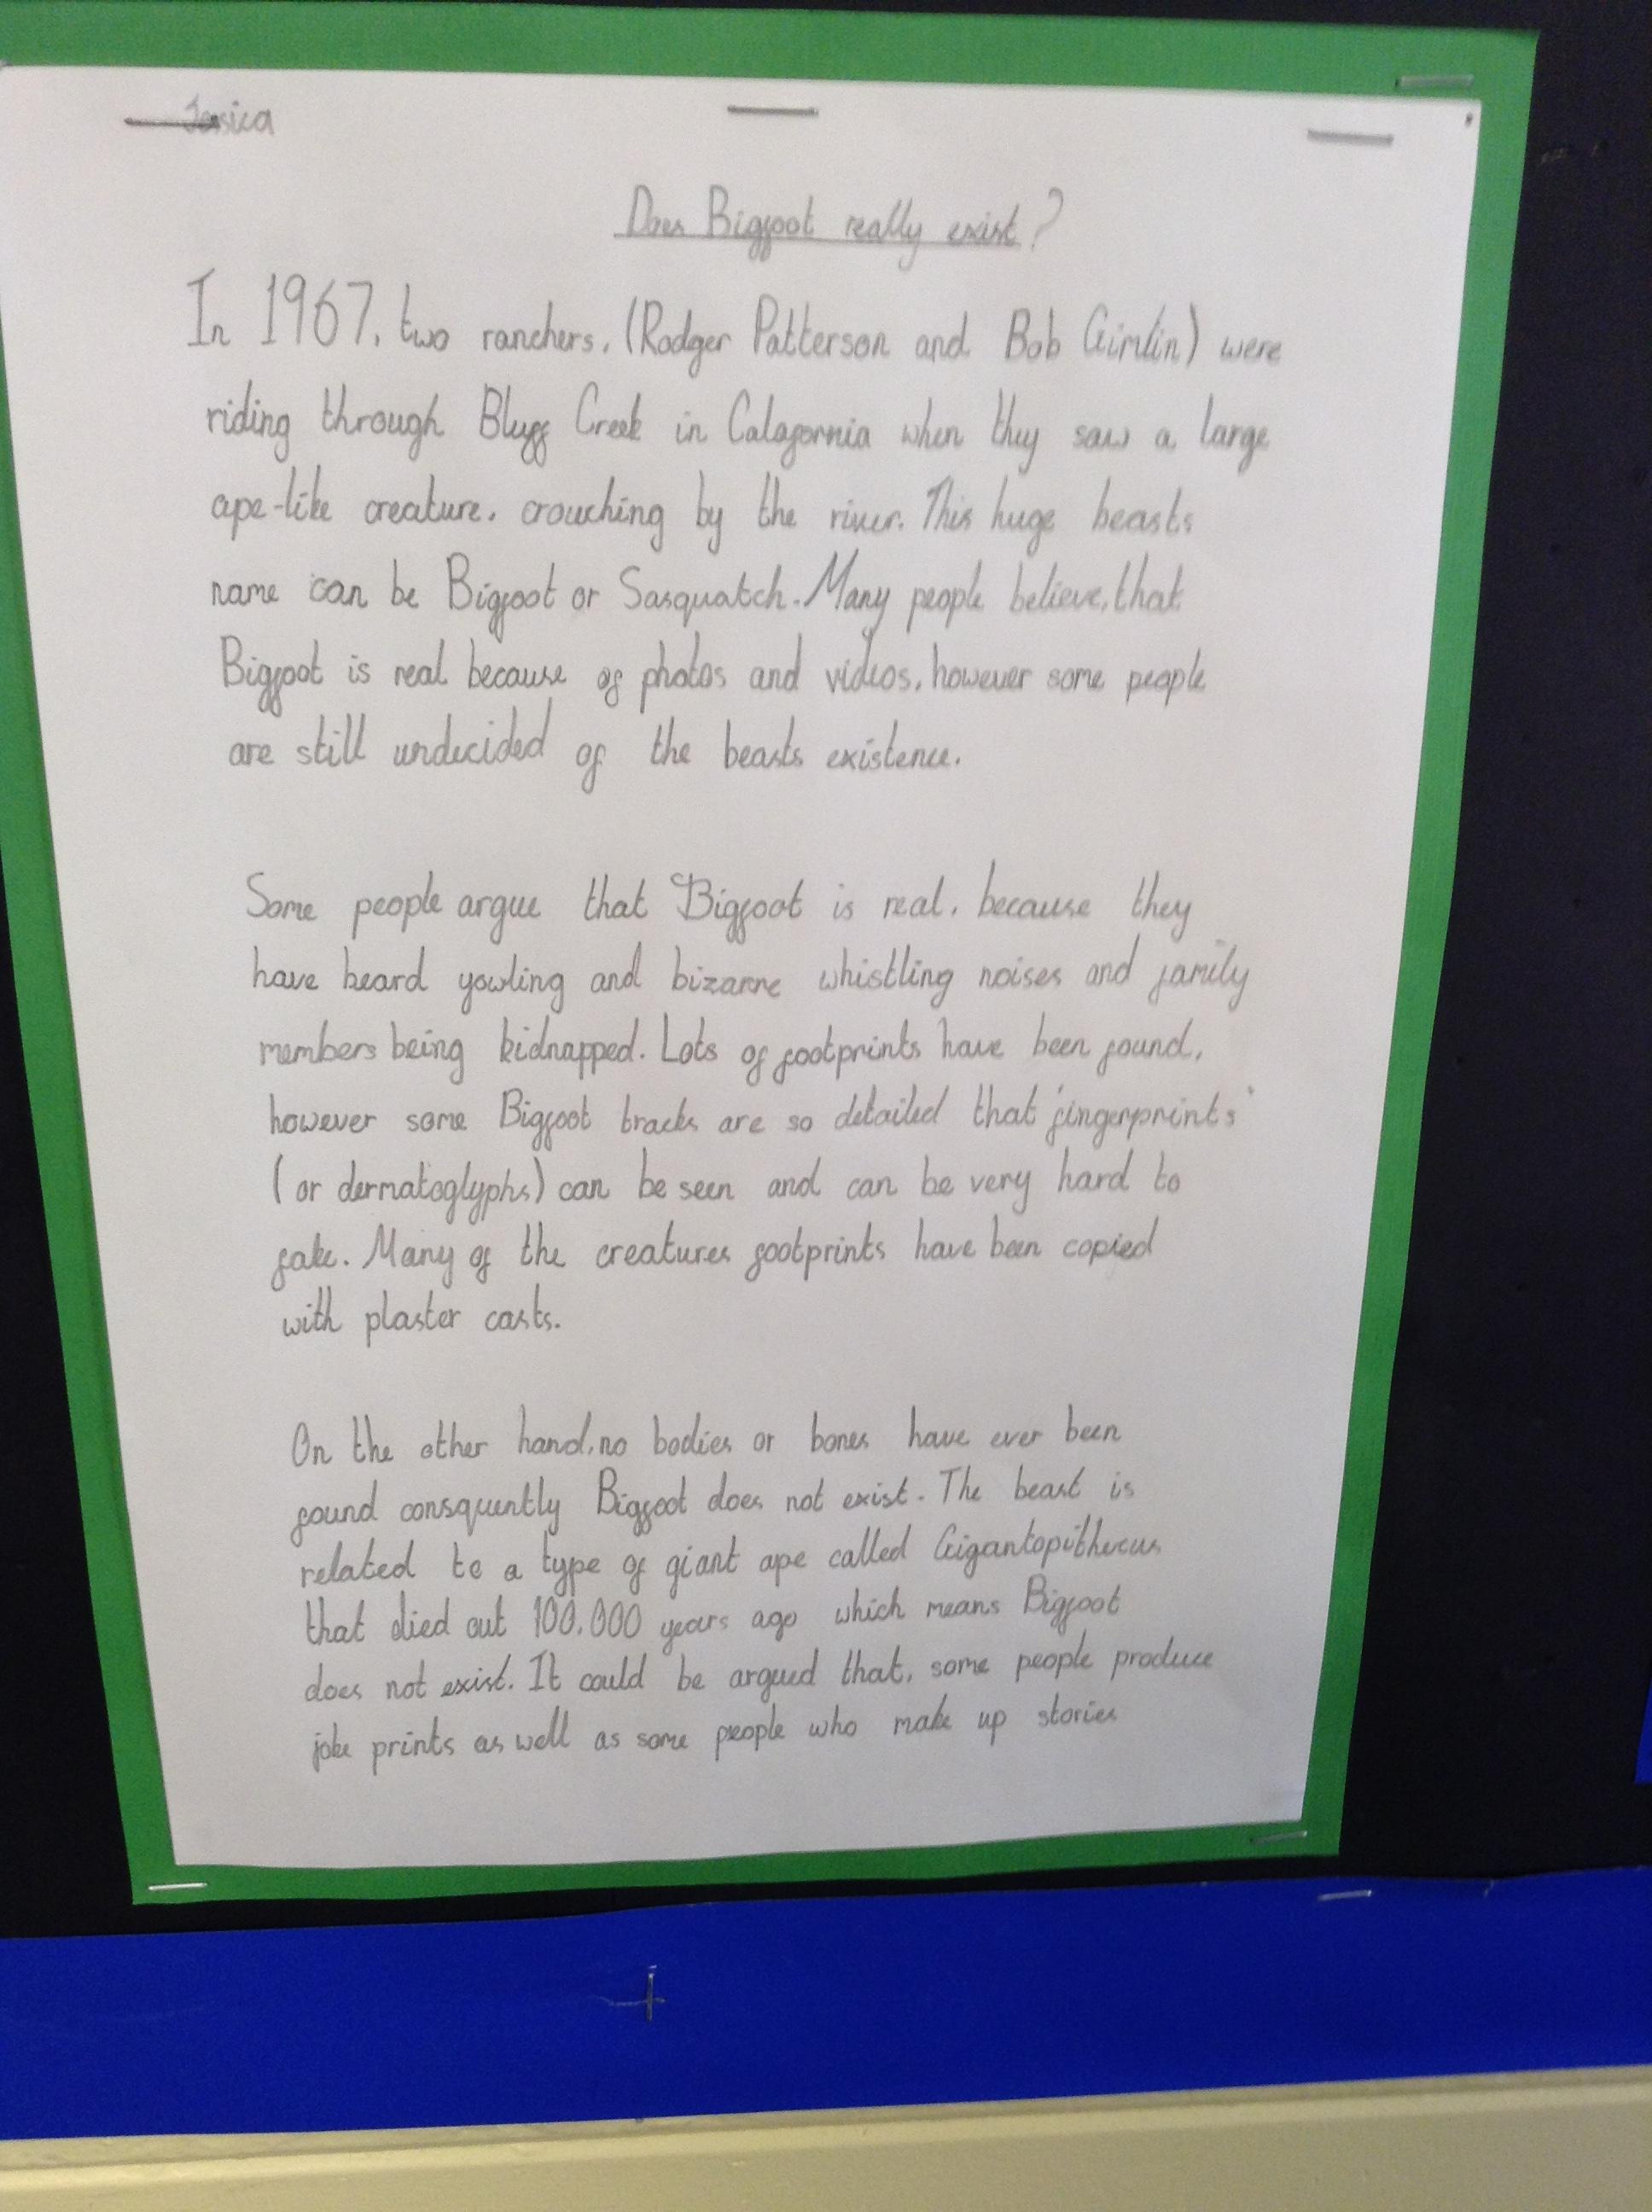 Jessica
Does Bigfoot really exist?
In 1967, two ranchers, (Rodger Patterson and Bob Gimlin) were
riding through Bluff Creek in Calafornia when they saw a large
ape-like creature, crouching by the river. This huge beasts
name can be Bigfoot or Sasquatch. Many people believe, that
Bigfoot is real because of photos and videos, however some people
are still undecided of the beasts existence.
Some people argue that Bigfoot is real, because they
have heard yowling and bizarre whistling noises and family
members being kidnapped. Lots of footprints have been found,
however some Bigfoot tracks are so detailed that 'fingerprints'
(or dermatoglyphs) can be seen and can be very hard to
fake. Many of the creatures footprints have been copied
with plaster casts.
On the other hand, no bodies or bones have ever been
found consquently Bigfoot does not exist. The beast is
related to a type of giant ape called Gigantopithecus
that died out 100,000 years ago which means Bigfoot
does not exist. It could be argued that, some people produce
joke prints as well as some people who make up stories